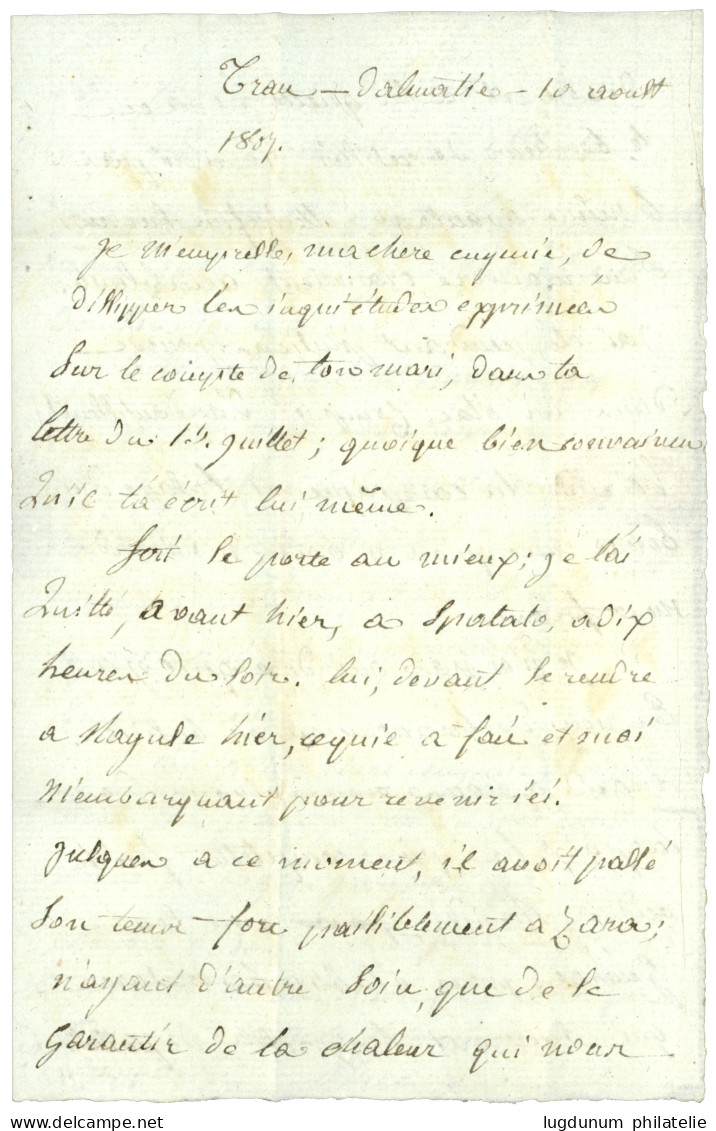 Trau – Dalmatie – 10 aoust
1807.
Je m'empresse, ma chere eugenie, de
dissipper les inquiétudes exprimées
Sur le compte de ton mari, dans ta
lettre du 15. juillet; quoique bien convaincu
Qu'il t'a écrit lui même.
Il se porte au mieux; je l'ai
Quitté, avant hier, a Spalato, a dix
heures du Soir. lui, devant se rendre
a Raguse hier, ce qu'il a fait et moi
M'embarquant pour revenir ici.
Jusques à ce moment, il avoit passé
Son tems fort paisiblement a Zara;
n'ayant d'autre Soin, que de se
Garantir de la chaleur qui nous
lugdunum philatelie